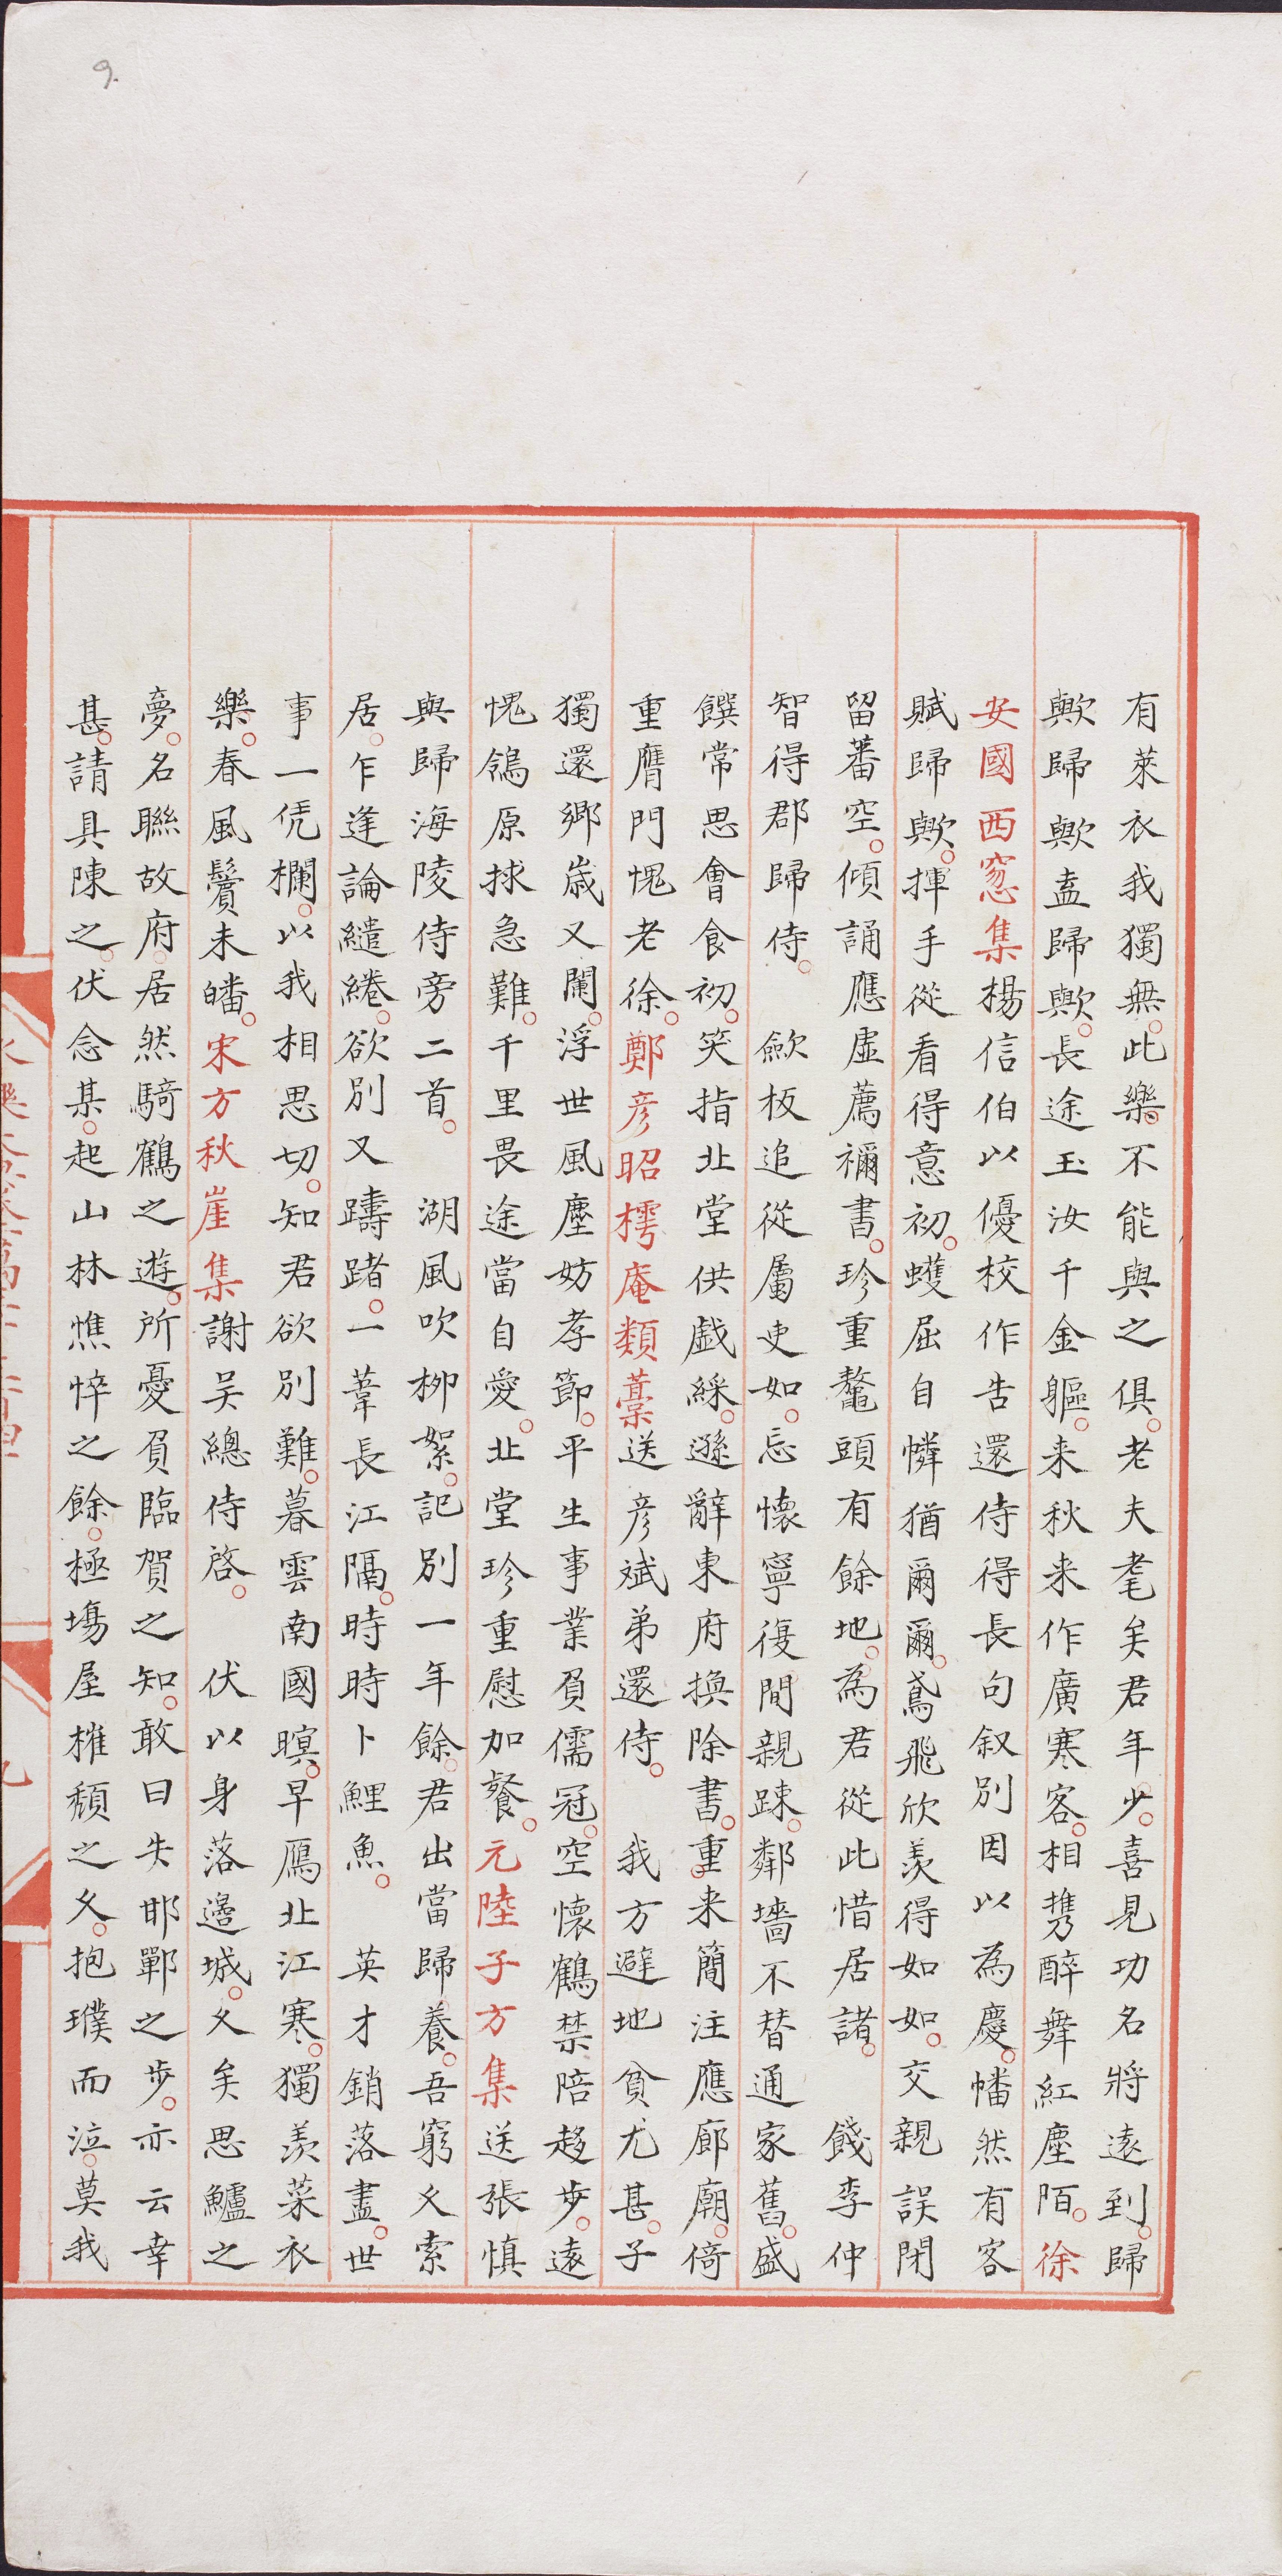 有萊衣我獨無。此樂。不能與之俱。老夫耄矣君年少。喜見功名將遠到。歸
歟歸歟盍歸歟。長途玉汝千金軀。来秋来作廣寒客。相携醉舞紅塵陌。徐
安國西窓集楊信伯以優校作告還侍得長句叙別因以為慶。幡然有客
賦歸歟。揮手從看得意初。蠖屈自憐猶爾爾。鳶飛欣羡得如如。交親誤閉
留蕃空。傾誦應虛薦禰書。珍重鼇頭有餘地。為君從此惜居諸。 餞李仲
智得郡歸侍。 歛板追從屬吏如。忘懷寧復間親踈。鄰墻不替通家舊。盛
饌常思會食初。笑指北堂供戲綵。遜辭東府換除書。重来簡注應廊廟。倚
重膺門愧老徐。鄭彦昭樗庵類藁送彦斌弟還侍。 我方避地貧尤甚。子
獨還鄉歲又闌。浮世風塵妨孝節。平生事業負儒冠。空懷鶴禁陪趍步。遠
愧鴒原捄急難。千里畏途當自愛。北堂珍重慰加餐。元陸子方集送張慎
與歸海陵侍旁二首。 湖風吹柳絮。記別一年餘。君出當歸養。吾窮久索
居。乍逢論繾綣。欲別又躊躇。一葦長江隔。時時卜鯉魚。 英才銷落盡。世
事一凭欄。以我相思切。知君欲別難。暮雲南國暝。早鴈北江寒。獨羡菜衣
樂。春風鬢未皤。宋方秋崖集謝吴總侍啓。 伏以身落邉城。久矣思鱸之
夢。名聯故府。居然騎鶴之遊。所憂負臨賀之知。敢曰失邯鄲之步。亦云幸
甚。請具陳之。伏念某。起山林憔悴之餘。極塲屋摧頹之久。抱璞而泣。莫我